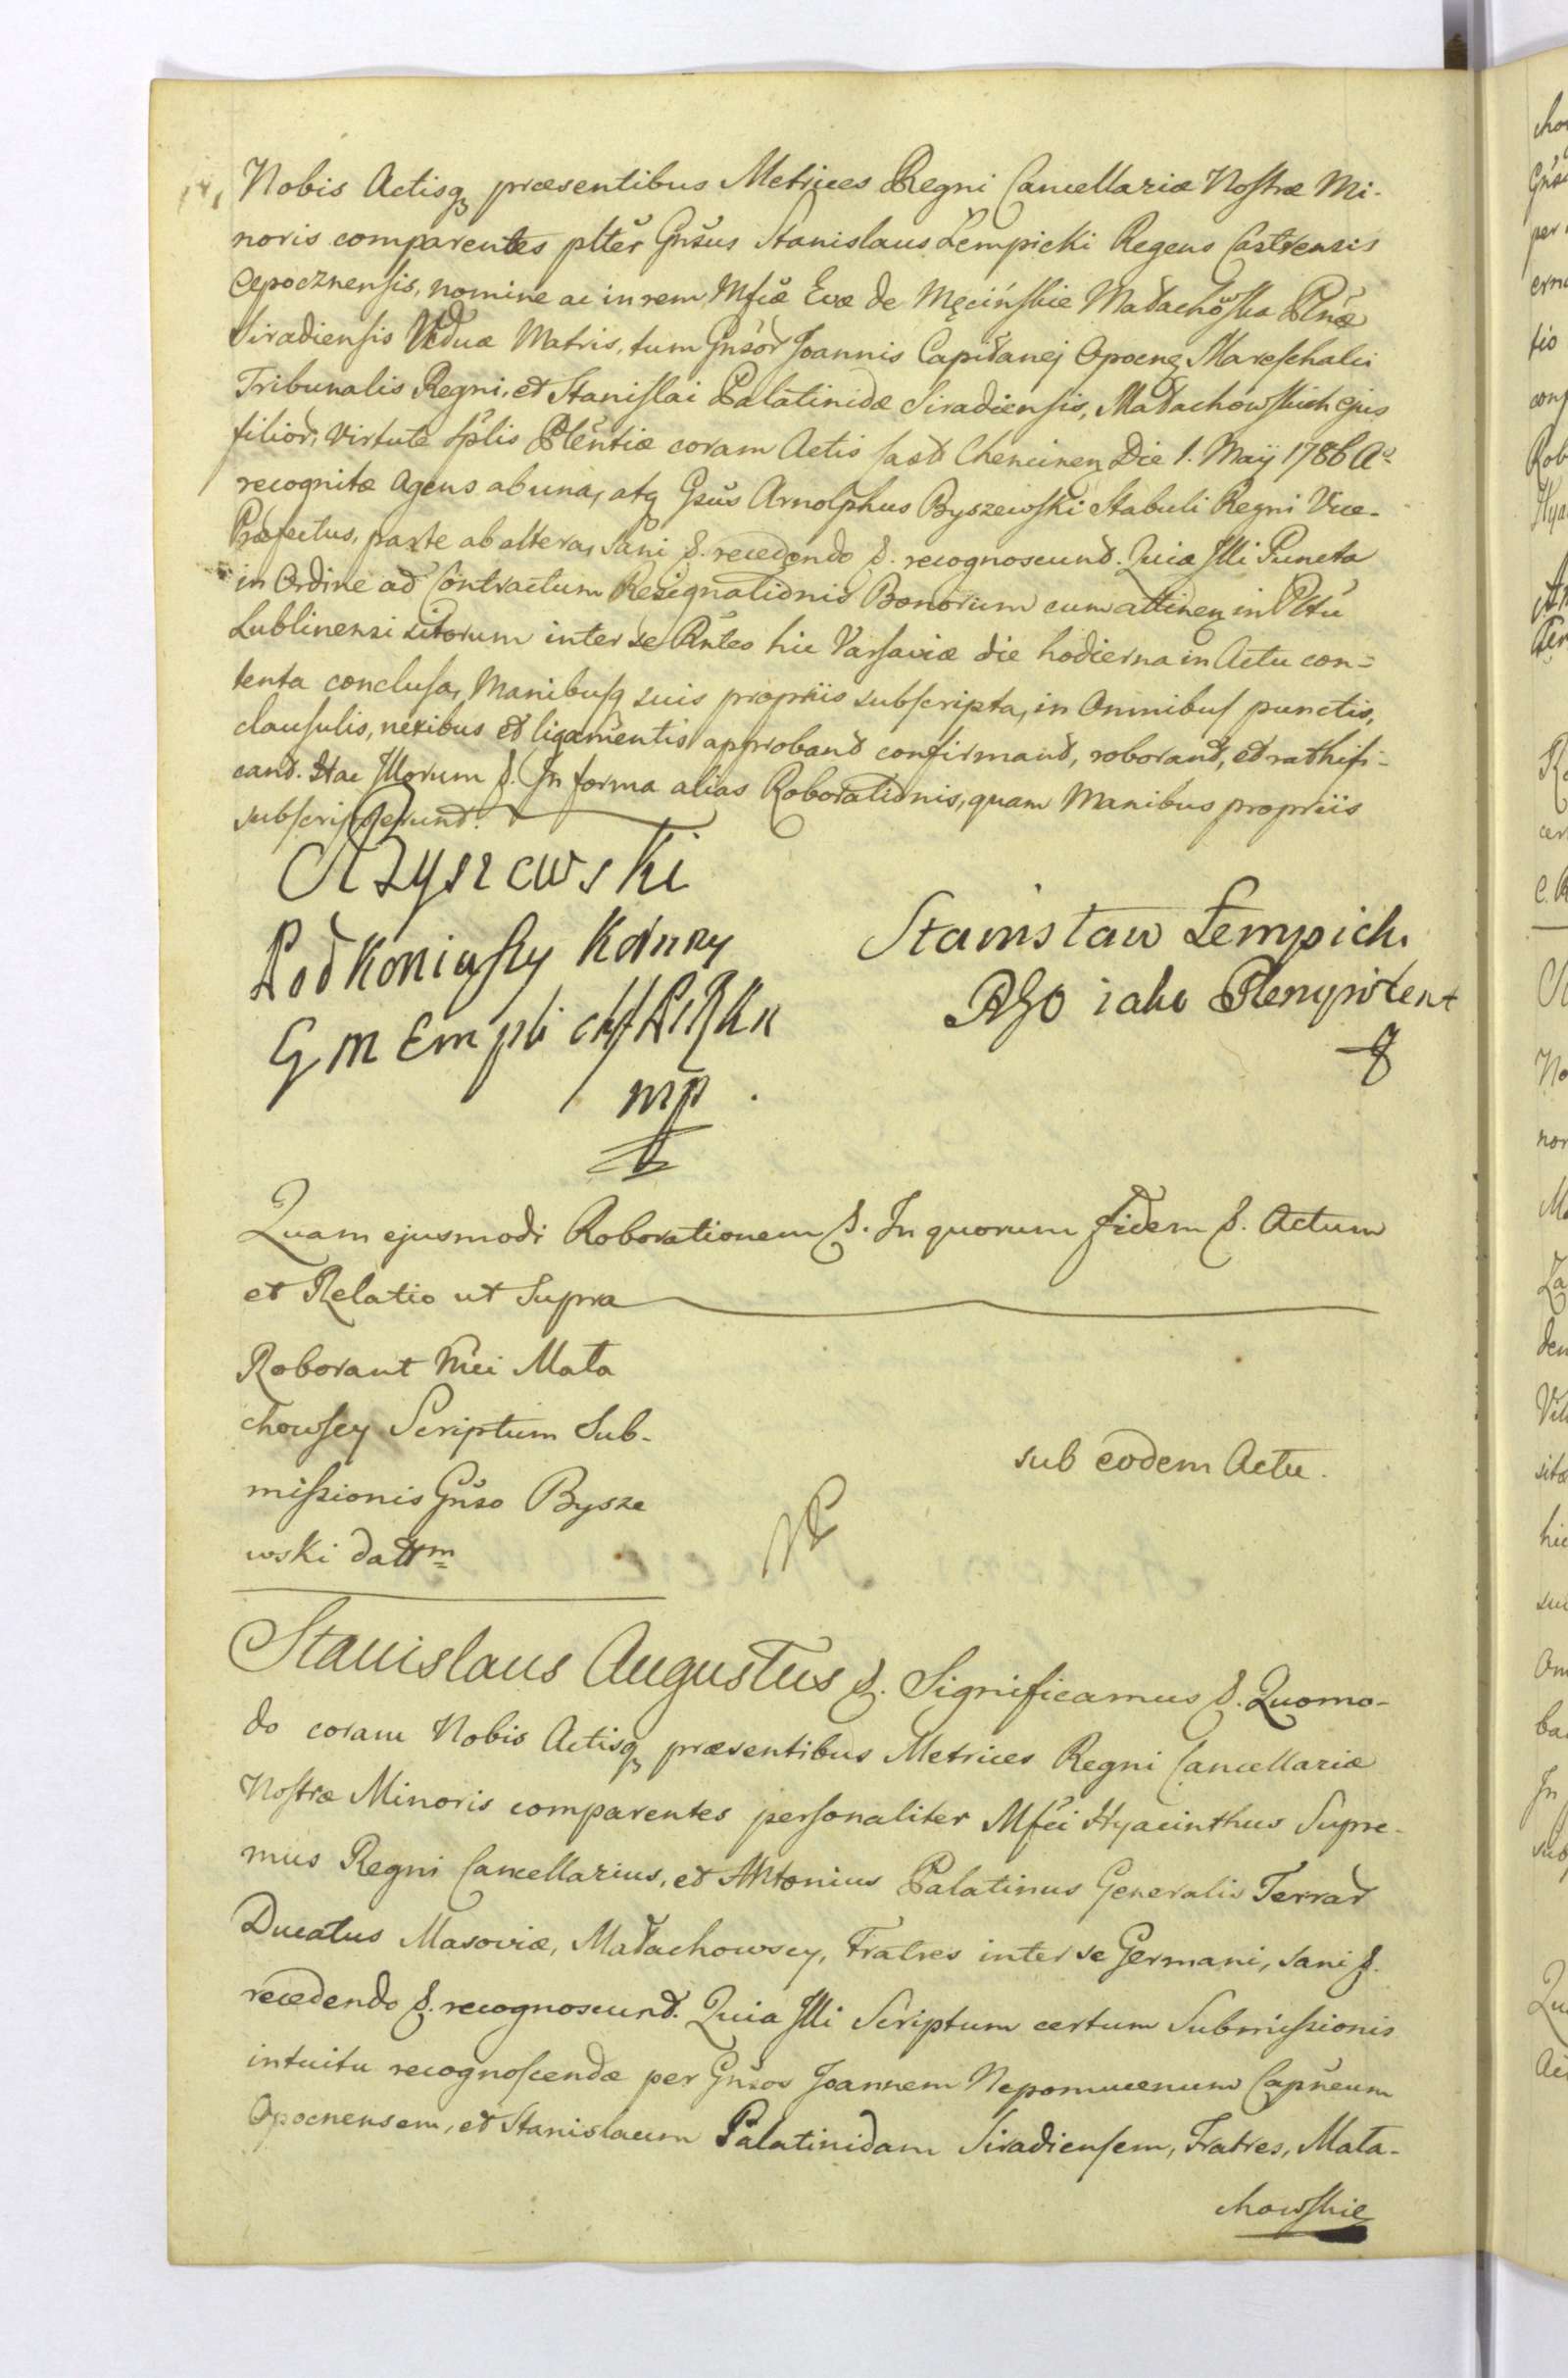 Nobis Actisq præsentibus Metrices Regni Cancellariæ Nostræ Mi-
noris comparentes pltěr Gnšus Stanislaus Łempicki Regens Castrensis
Opocznensis, nomine ac in rem Mfcæ Evæ de Męcińskie Małachowska Płnæ
Siradiensis Viduæ Matris, tum Gnsor Joannis Capitanej Opocnę Mareschalci
Tribunalis Regni, et Stanislai Palatinidæ Siradiensis, Małachowskich ejus
filior, virtute splis Pleňtiæ coram Actis Chencinen Die 1. Maÿ 1786 Aº
recognitæ Agens ab una, atq Gsus Arnolphus Byszewski Stabuli Regni Vice-
Præfectus, parte ab altera, sani &. recedendo &. recognoscund. Quia Illi Puncta
in Ordine ad Contractum Resignationis Bonorum cum attinen in Pltu
Lublinensi sitorum inter se Pntes hic Varsaviæ die hodierna in Actu con-
tenta conclusa, Manibusq suis propriis subscripta, in Omnibus punctis,
clausulis, nexibus et ligamentis approband confirmand, roborand, et rathifi-
cand. Hac Illorum &. In forma alias Roborationis, quam Manibus propriis
subscripserund.
ABYszewski
PodKoniuszy Koronny
G M
mp
Stanisław Łempicki
RGO iako Plenypotent
Quam ejusmodi Roborationem &. In quorum fidem &. Actum
et Relatio ut Supra
Roborant Mci Mała
chowscy Scriptum Sub-
missionis Gnšo Bysze
wski dattm
sub eodem Actu.
Stanislaus Augustus &. Significamus &. Quomo-
do coram Nobis Actisq præsentibus Metrices Regni Cancellariæ
Nostræ Minoris comparentes personaliter Mfci Hyacinthus Supre-
mus Regni Cancellarius, et Antonius Palatinus Generalis Terrar
Ducatus Masoviæ, Małachowscy, Fratres inter se Germani, sani &.
recedendo &. recognoscund. Quia Illi Scriptum certum Submissionis
intuitu recognoscendæ per Gnsos Joannem Nepomucenum Capneum
Opocnensem, et Stanislaum Palatinidam Siradiensem, Fratres, Mała-
chowskie